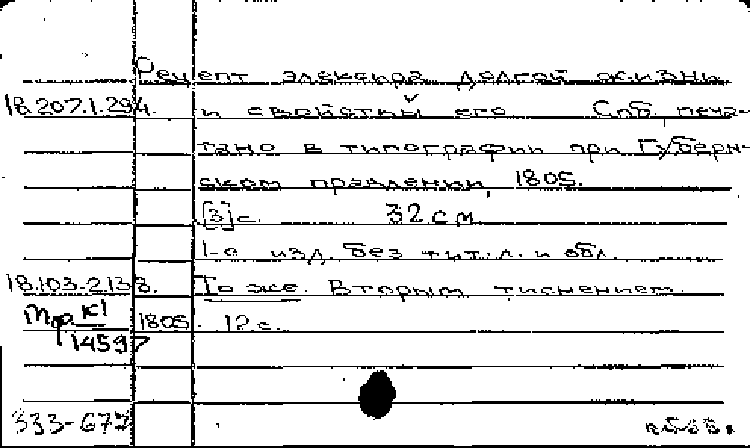 Рецепт элексира долгой жизни
18.207.1.294. и свойства его Спб. печа-
тано в типографии при Губерн-
ском правлении, 1805.
[3] с. 32 см
1-е изд. без тит. л. и обл.
18.103-2.138. То же. Вторым тиснением.
К1 1805. 12 с.
14597
333-677